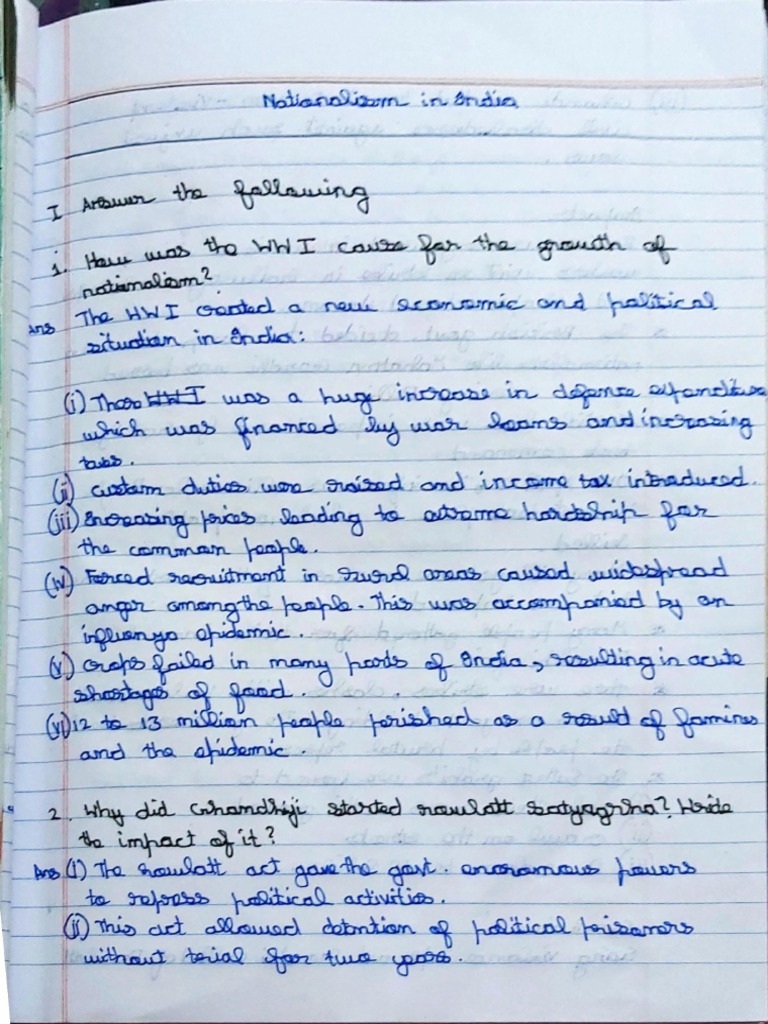 Nationalism in India
I Answer the following
1. How was the WW I cause for the growth of
nationalism?
Ans The WW I created a new economic and political
situation in India:
(i) There was a huge increase in defence expenditure
which was financed by war loans and increasing
taxes.
(ii) custom duties were raised and income tax introduced.
(iii) Increasing prices leading to extreme hardship for
the common people.
(iv) Forced recruitment in rural areas caused widespread
anger among the people. This was accompanied by an
influenza epidemic.
(v) Crops failed in many parts of India, resulting in acute
shortages of food.
(vi) 12 to 13 million people perished as a result of famines
and the epidemic.
2. Why did Ghandhiji started rowlatt satyagrha? Write
the impact of it?
Ans (i) The rowlatt act gave the govt. enoromous powers
to repress political activities.
(ii) This act allowed detention of political prisoners
without trial for two years.